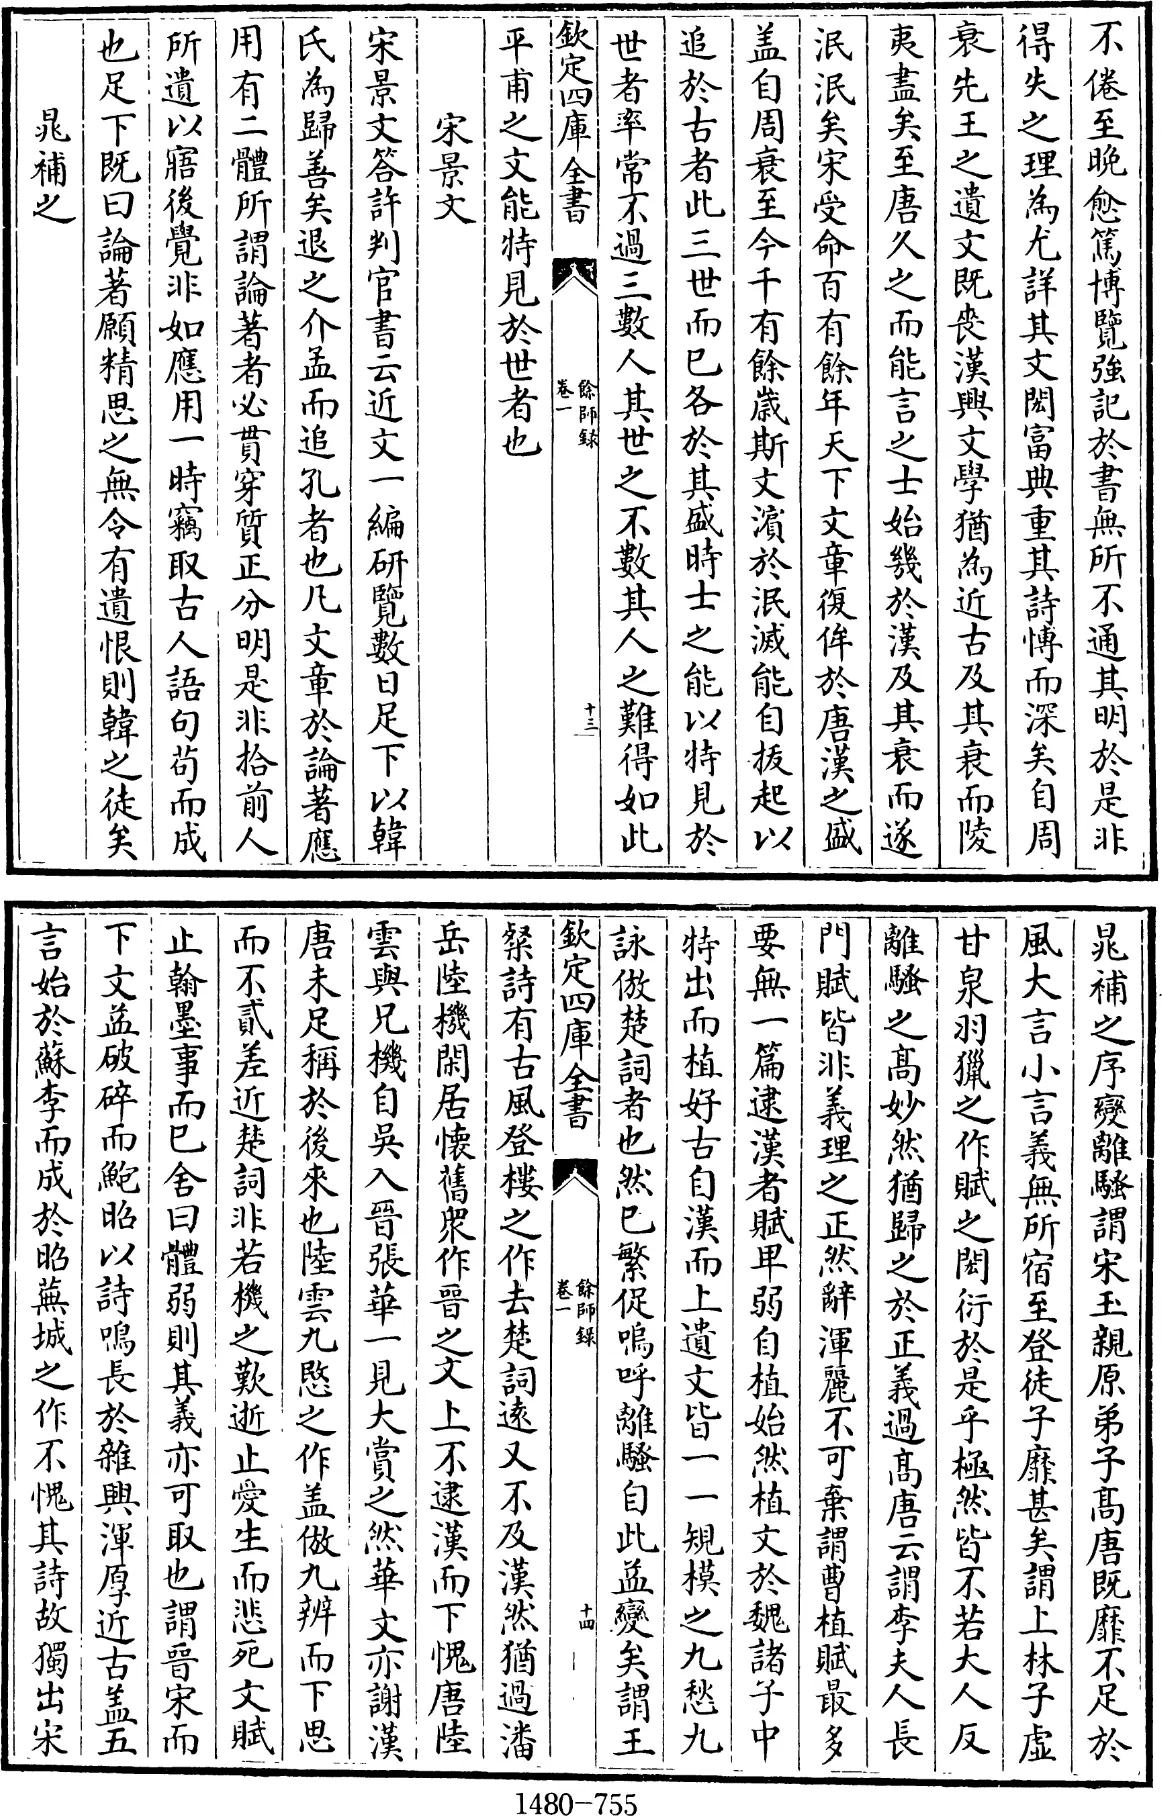 不倦至晚愈篤博覽強記於書無所不通其明於是非
得失之理為尤詳其文閎富典重其詩博而深矣自周
衰先王之遺文既喪漢興文學猶為近古及其衰而陵
夷盡矣至唐久之而能言之士始幾於漢及其衰而遂
泯泯矣宋受命百有餘年天下文章復侔於唐漢之盛
盖自周衰至今千有餘歲斯文濵於泯滅能自拔起以
追於古者此三世而已各於其盛時士之能以特見於
世者率常不過三數人其世之不數其人之難得如此
欽定四庫全書
餘師録
卷一
十三
平甫之文能特見於世者也
宋景文
宋景文答許判官書云近文一編研覽數日足下以韓
氏為歸善矣退之介孟而追孔者也凡文章於論著應
用有二體所謂論著者必貫穿質正分明是非拾前人
所遺以寤後覺非如應用一時竊取古人語句苟而成
也足下既曰論著願精思之無令有遺恨則韓之徒矣
晁補之
晁補之序變離騷謂宋玉親原弟子高唐既靡不足於
風大言小言義無所宿至登徒子靡甚矣謂上林子虛
甘泉羽獵之作賦之閎衍於是乎極然皆不若大人反
離騷之高妙然猶歸之於正義過高唐云謂李夫人長
門賦皆非義理之正然辭渾麗不可棄謂曹植賦最多
要無一篇逮漢者賦卑弱自植始然植文於魏諸子中
特出而植好古自漢而上遺文皆一一規模之九愁九
詠倣楚詞者也然已繁促嗚呼離騷自此益變矣謂王
欽定四庫全書
餘師録
卷一
十四
粲詩有古風登樓之作去楚詞遠又不及漢然猶過潘
岳陸機閑居懷舊衆作晉之文上不逮漢而下愧唐陸
雲與兄機自吳入晉張華一見大賞之然華文亦謝漢
唐未足稱於後來也陸雲九愍之作盖倣九辨而下思
而不貳差近楚詞非若機之歎逝止愛生而悲死文賦
止翰墨事而已舍曰體弱則其義亦可取也謂晉宋而
下文益破碎而鮑昭以詩鳴長於雜興渾厚近古盖五
言始於蘇李而成於昭蕪城之作不愧其詩故獨出宋
1480-755